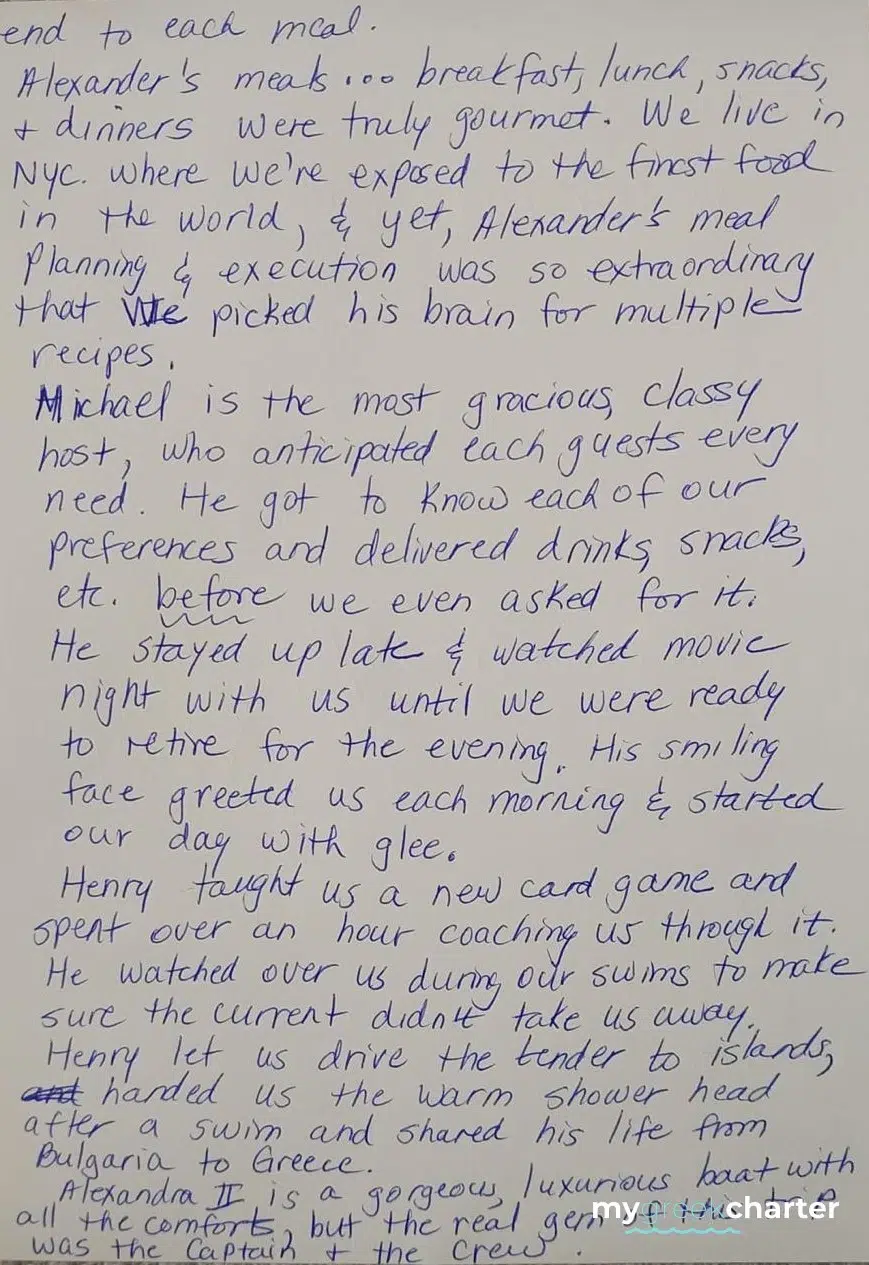 end to each meal.
Alexander's meals ... breakfast, lunch, snacks,
+ dinners were truly gourmet. We live in
NYC. where we're exposed to the finest food
in the world, & yet, Alexander's meal
planning & execution was so extraordinary
that we picked his brain for multiple
recipes.
Michael is the most gracious, classy
host, who anticipated each guests every
need. He got to know each of our
preferences and delivered drinks, snacks,
etc. before we even asked for it.
He stayed up late & watched movie
night with us until we were ready
to retire for the evening. His smiling
face greeted us each morning & started
our day with glee.
Henry taught us a new card game and
spent over an hour coaching us through it.
He watched over us during our swims to make
sure the current didn't take us away.
Henry let us drive the tender to islands,
handed us the warm shower head
after a swim and shared his life from
Bulgaria to Greece.
Alexandra II is a gorgeous, luxurious boat with
all the comforts, but the real gem
was the Captain + the Crew.
mygreekcharter